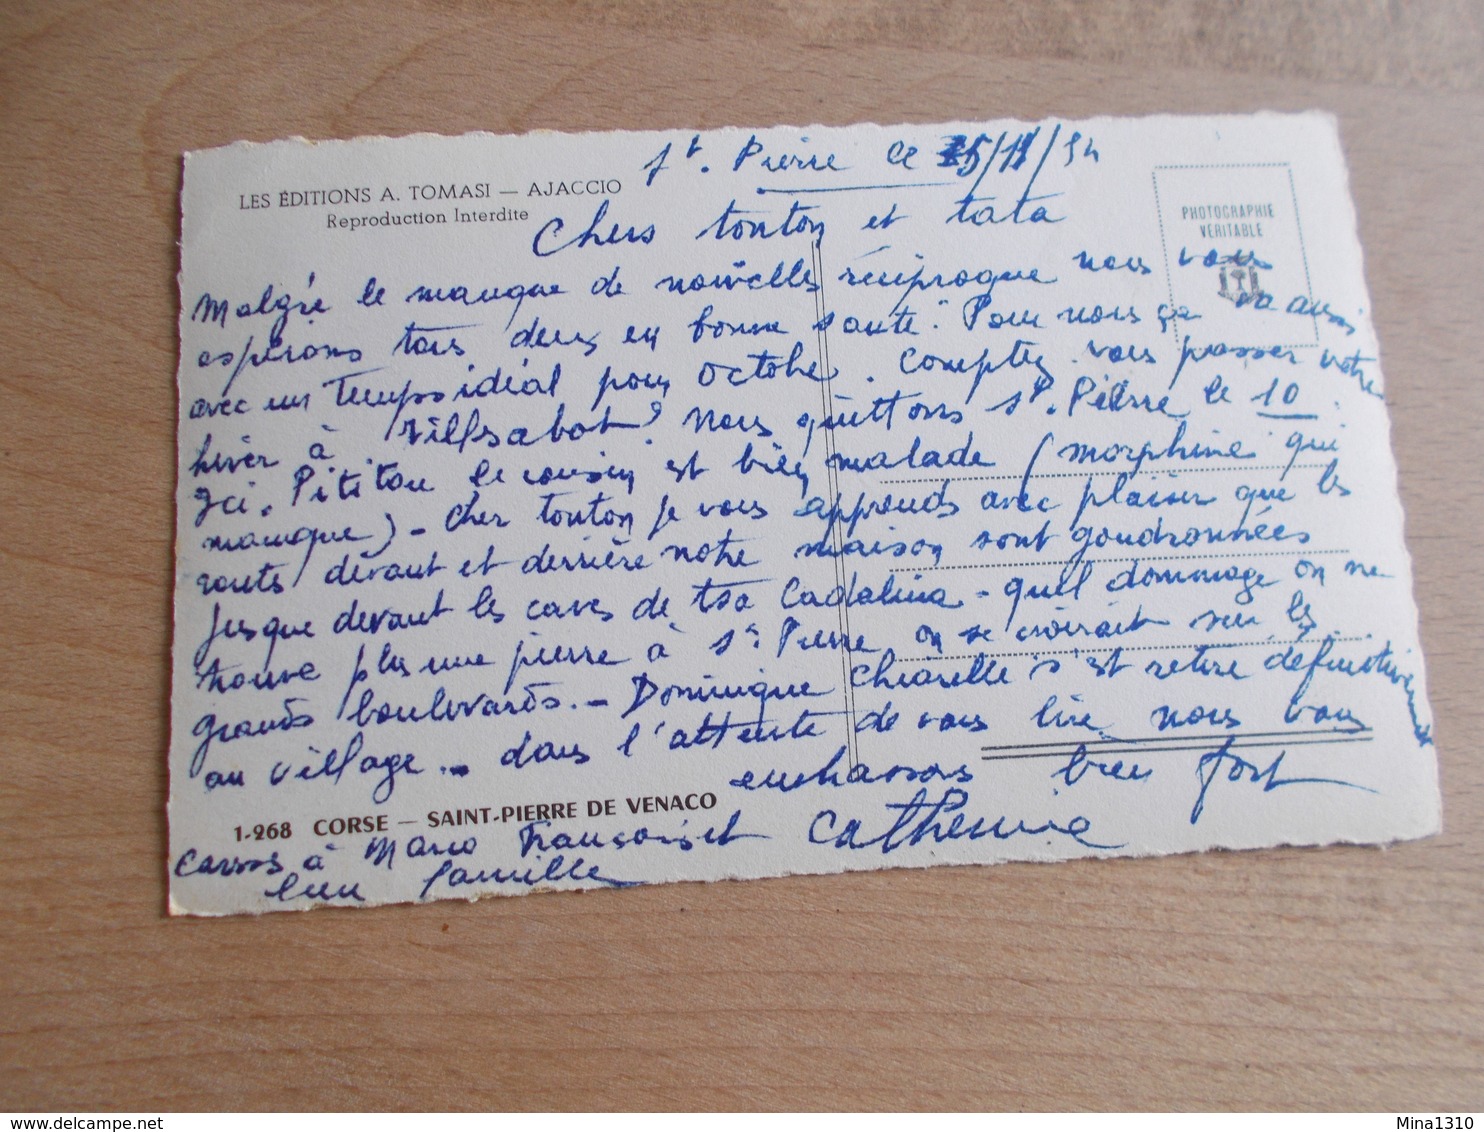 LES ÉDITIONS A. TOMASI — AJACCIO
Reproduction Interdite
PHOTOGRAPHIE
VÉRITABLE
St. Pierre le
Chers tonton et tata
Malgré le manque de nouvelles réciproque nous vous
espérons tous deux en bonne santé. Pour nous ça va aussi
avec un temps idéal pour octobre. Comptez vous passer votre
hiver à ? Nous quittons St. Pierre le 10.
Ici. Pititou le cousin est bien malade (morphine qui
manque) - Cher tonton je vous apprends avec plaisir que les
routs devant et derrière notre maison sont goudronnées
jusque devant les caves de tsa Cadalina - quel dommage on ne
trouve plus une pierre à St Pierre on se croirait sur les
grands boulevards. - Dominique s'est retire définitivement
au village - dans l'attente de vous lire nous vous
embrassons bien fort
1-268 CORSE — SAINT-PIERRE DE VENACO
Catherine
à Marco François et
leur famille
Mina1310